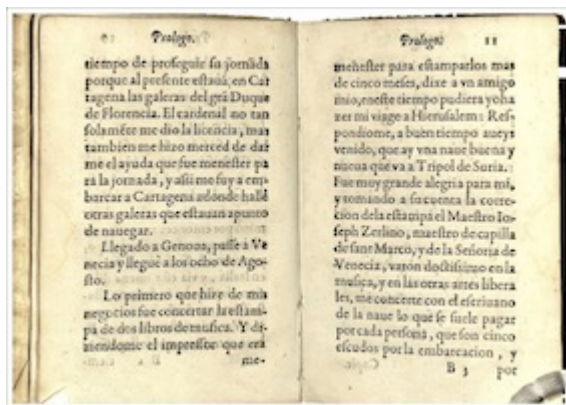 Prologo.
tiempo de proseguir su jornada
porque al presente estaua en Car
tagena las galeras del grã Duque
de Florencia. El cardenal no tan
solamẽte me dio la licencia, mas
tambien me hizo merced de dar
me el ayuda que fue menester pa
ra la jornada, y assi me fuy a em-
barcar a Cartagena adonde hallè
otras galeras que estauan apunto
de nauegar.
Llegado a Genoua, passe à Ve
necia y lleguè a los ocho de Ago-
sto.
Lo primero que hize de mis
negocios fue concertar la estam-
pa de dos libros de musica. Y di-
ziendome el impressor que era
me-
Prologo.
11
menester para estamparlos mas
de cinco meses, dixe a vn amigo
mio, eneste tiempo pudiera yo ha
zer mi viage a Hierusalem: Res-
pondiome, a buen tiempo aueys
venido, que ay vna naue buena y
nueua que va a Tripol de Suria.
Fue muy grande alegria para mi,
y tomando a su cuenta la corre-
cion dela estampa el Maestro Io-
seph Zerlino, maestro de capilla
de sant Marco, y de la Señoria de
Venecia, varon doctissimo en la
musica, y en las otras artes libera
les, me concerte con el escriuano
de la naue lo que se suele pagar
por cada persona, que son cinco
escudos por la embarcacion, y
B 3 por